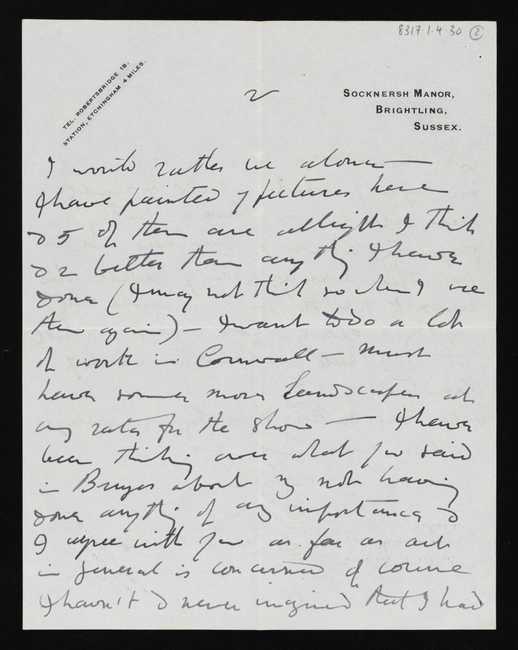 8317.1.4.30 2
TEL. ROBERTSBRIDGE 18.
STATION, ETCHINGHAM 4 MILES.
2
SOCKNERSH MANOR,
BRIGHTLING,
SUSSEX.
I would rather be alone —
I have painted 7 pictures here
& 5 of them are allright I think
& 2 better than anything I have
done (I may not think so when I see
them again) — I want to do a lot
of work in Cornwall — must
have some more Landscapes at
any rate for the show — I have
been thinking over what you said
in Bruges about my not having
done anything of any importance &
I agree with you as far as art
in general is concerned of course
I haven't & never imagined that I had